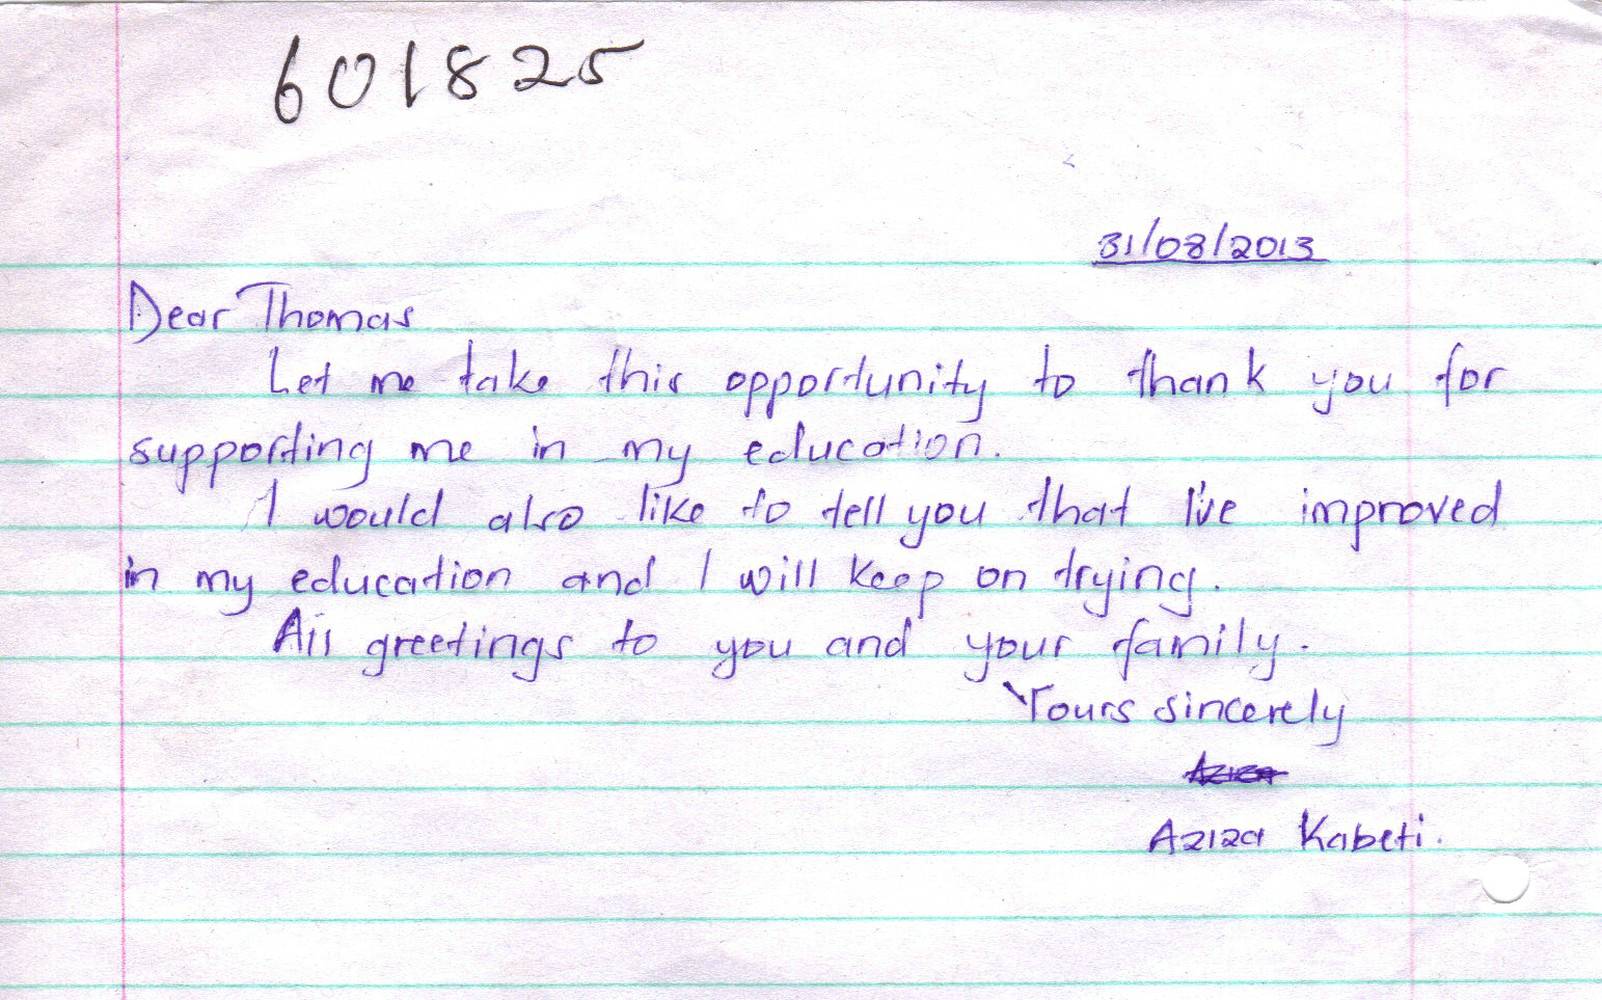 601825
31/08/2013
Dear Thomas
Let me take this opportunity to thank you for
supporting me in my education.
I would also like to tell you that I've improved
in my education and I will keep on trying.
All greetings to you and your family.
Yours sincerely
Aziza
Aziza Kabeti.